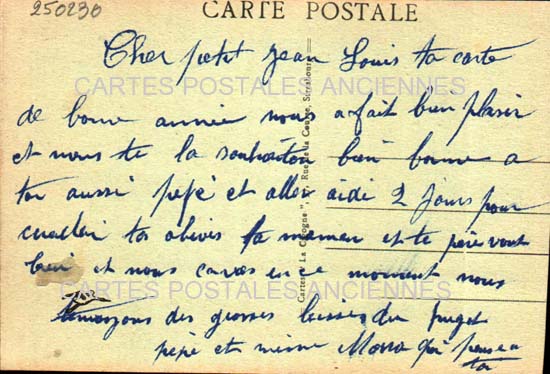 250230
CARTE POSTALE
Cher petit Jean Louis ta carte
CARTES POSTALES ANCIENNES
de bonne année nous a fait bien plaisir
et nous te la souhaiton bien bonne a
toi aussi pépé et aller aidé 2 Jours pour
ta maman et te père vont
bien et nous en ce moment nous
CARTES POSTALES ANCIENNES
des grosses bises du
pépé et mémé qui pense a
toi
Cartes "La Cigogne", Rue de la Course, Strasbourg